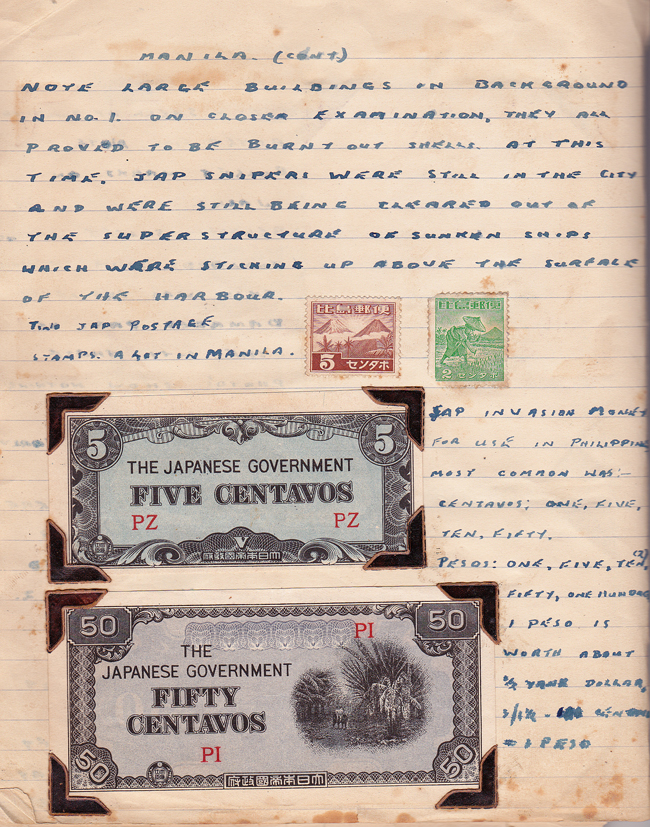 MANILA. (CONT)
NOTE LARGE BUILDINGS IN BACKGROUND
IN NO.1. ON CLOSER EXAMINATION, THEY ALL
PROVED TO BE BURNT OUT SHELLS. AT THIS
TIME, JAP SNIPERS WERE STILL IN THE CITY
AND WERE STILL BEING CLEARED OUT OF
THE SUPERSTRUCTURE OF SUNKEN SHIPS
WHICH WERE STICKING UP ABOVE THE SURFACE
OF THE HARBOUR.
TWO JAP POSTAGE
STAMPS. A GOT IN MANILA.
比島郵便
5 センタボ
比島郵便
2 センタボ
5 5
THE JAPANESE GOVERNMENT
FIVE CENTAVOS
PZ PZ
V
府政國帝本日大
JAP INVASION MONEY
FOR USE IN PHILIPPINE
MOST COMMON WAS:-
CENTAVOS; ONE, FIVE,
TEN, FIFTY.
PESOS: ONE, FIVE, TEN,
FIFTY, ONE HUNDRED
1 PESO IS
WORTH ABOUT
YANK DOLLAR,
= 1 PESO
50 50
PI
THE
JAPANESE GOVERNMENT
FIFTY
CENTAVOS
PI
50 50
府政國帝本日大